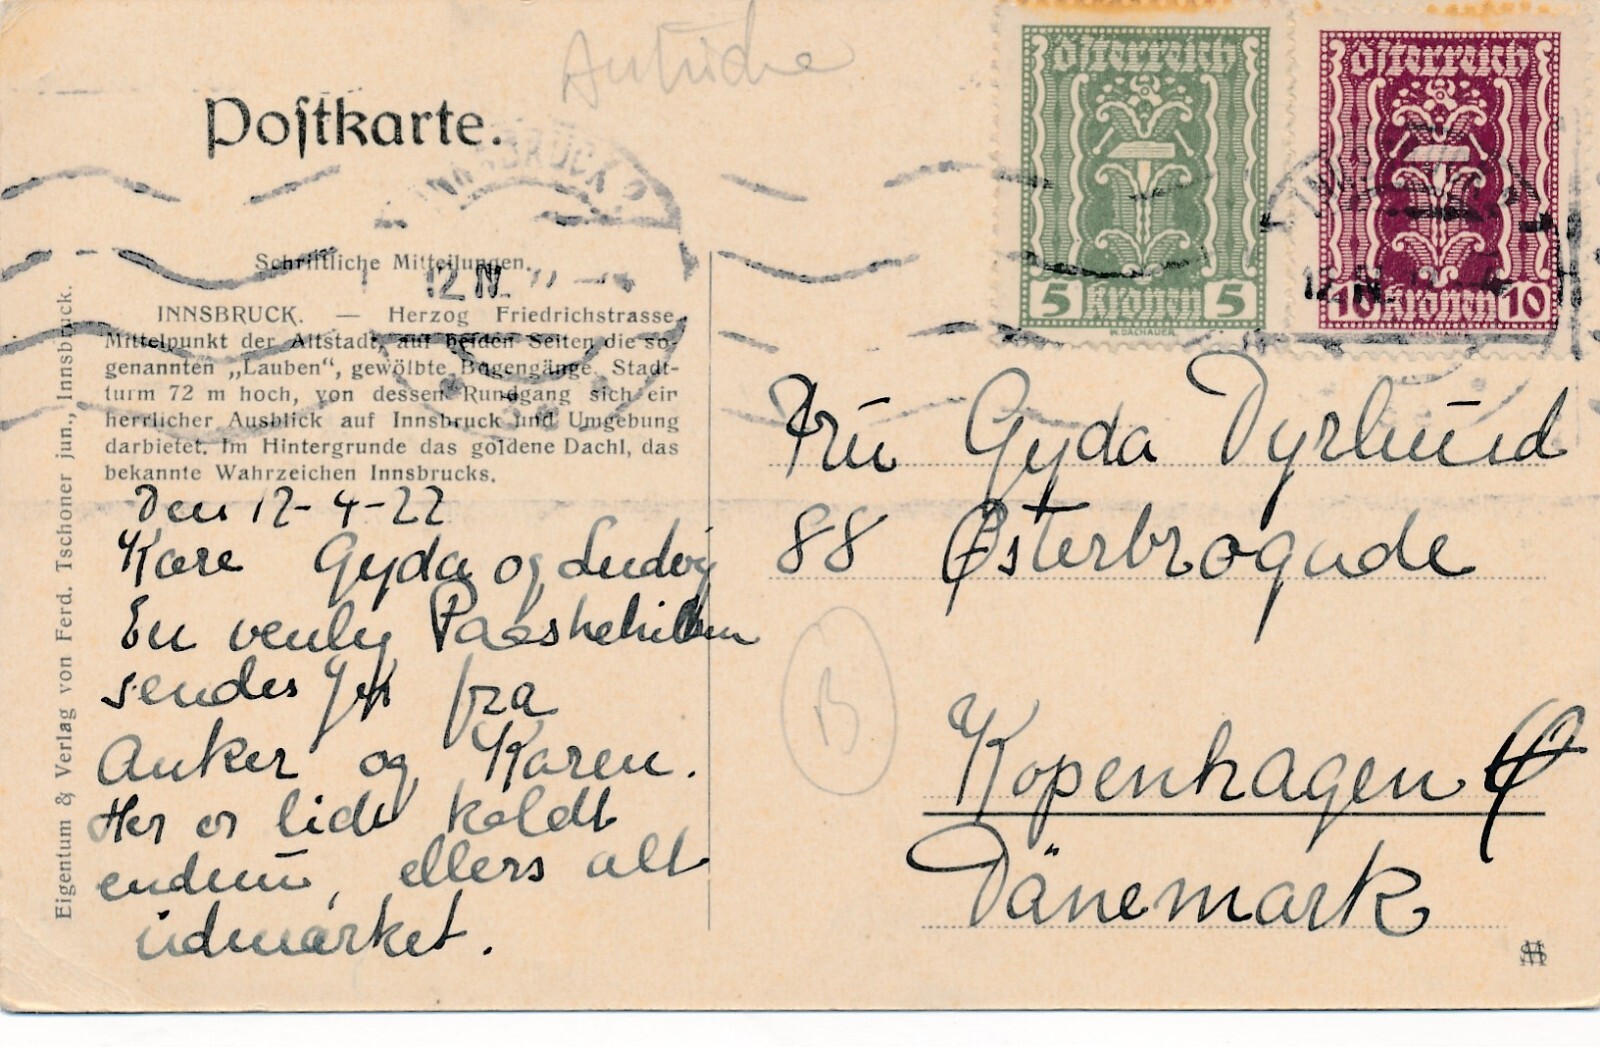 Postkarte.
Österreich
5 Kronen 5
Österreich
10 Kronen 10
Schriftliche Mitteilungen.
12 IV
12 IV
INNSBRUCK. — Herzog Friedrichstrasse,
Mittelpunkt der Altstadt, auf beiden Seiten die so-
genannten „Lauben“, gewölbte Bogengänge. Stadt-
turm 72 m hoch, von dessen Rundgang sich ein
herrlicher Ausblick auf Innsbruck und Umgebung
darbietet. Im Hintergrunde das goldene Dachl, das
bekannte Wahrzeichen Innsbrucks.
Eigentum & Verlag von Ferd. Tschoner jun., Innsbruck.
Den 12-4-22
Kære Gyda og Ludvig
En venlig Paaskehilsen
sendes fra
Anker og Karen.
Her er lidt koldt
endnu, ellers alt
udmærket.
Fru Gyda Dyrlund
88 Østerbrogade
Kopenhagen Ø
Dänemark
B